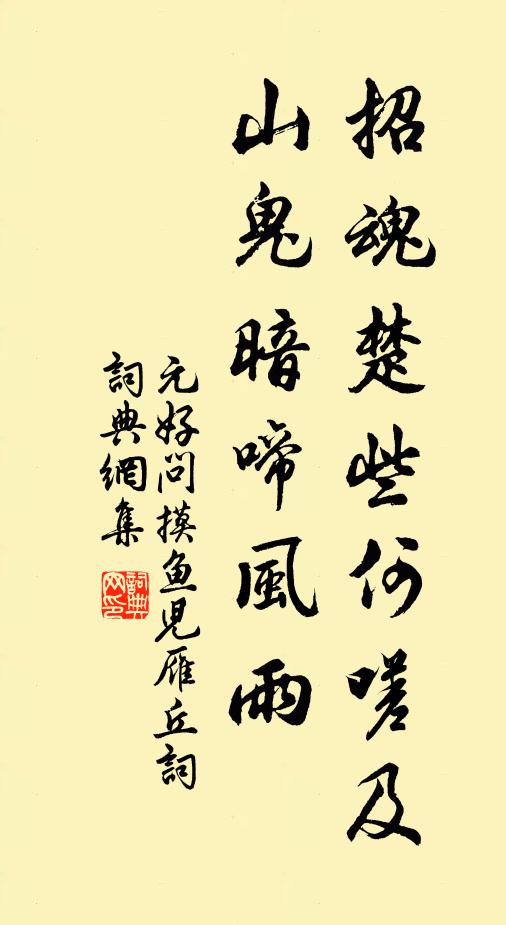 招魂楚些何嗟及
山鬼暗啼風雨
元好問摸魚兒雁丘詞
詞典網集
詞典网印